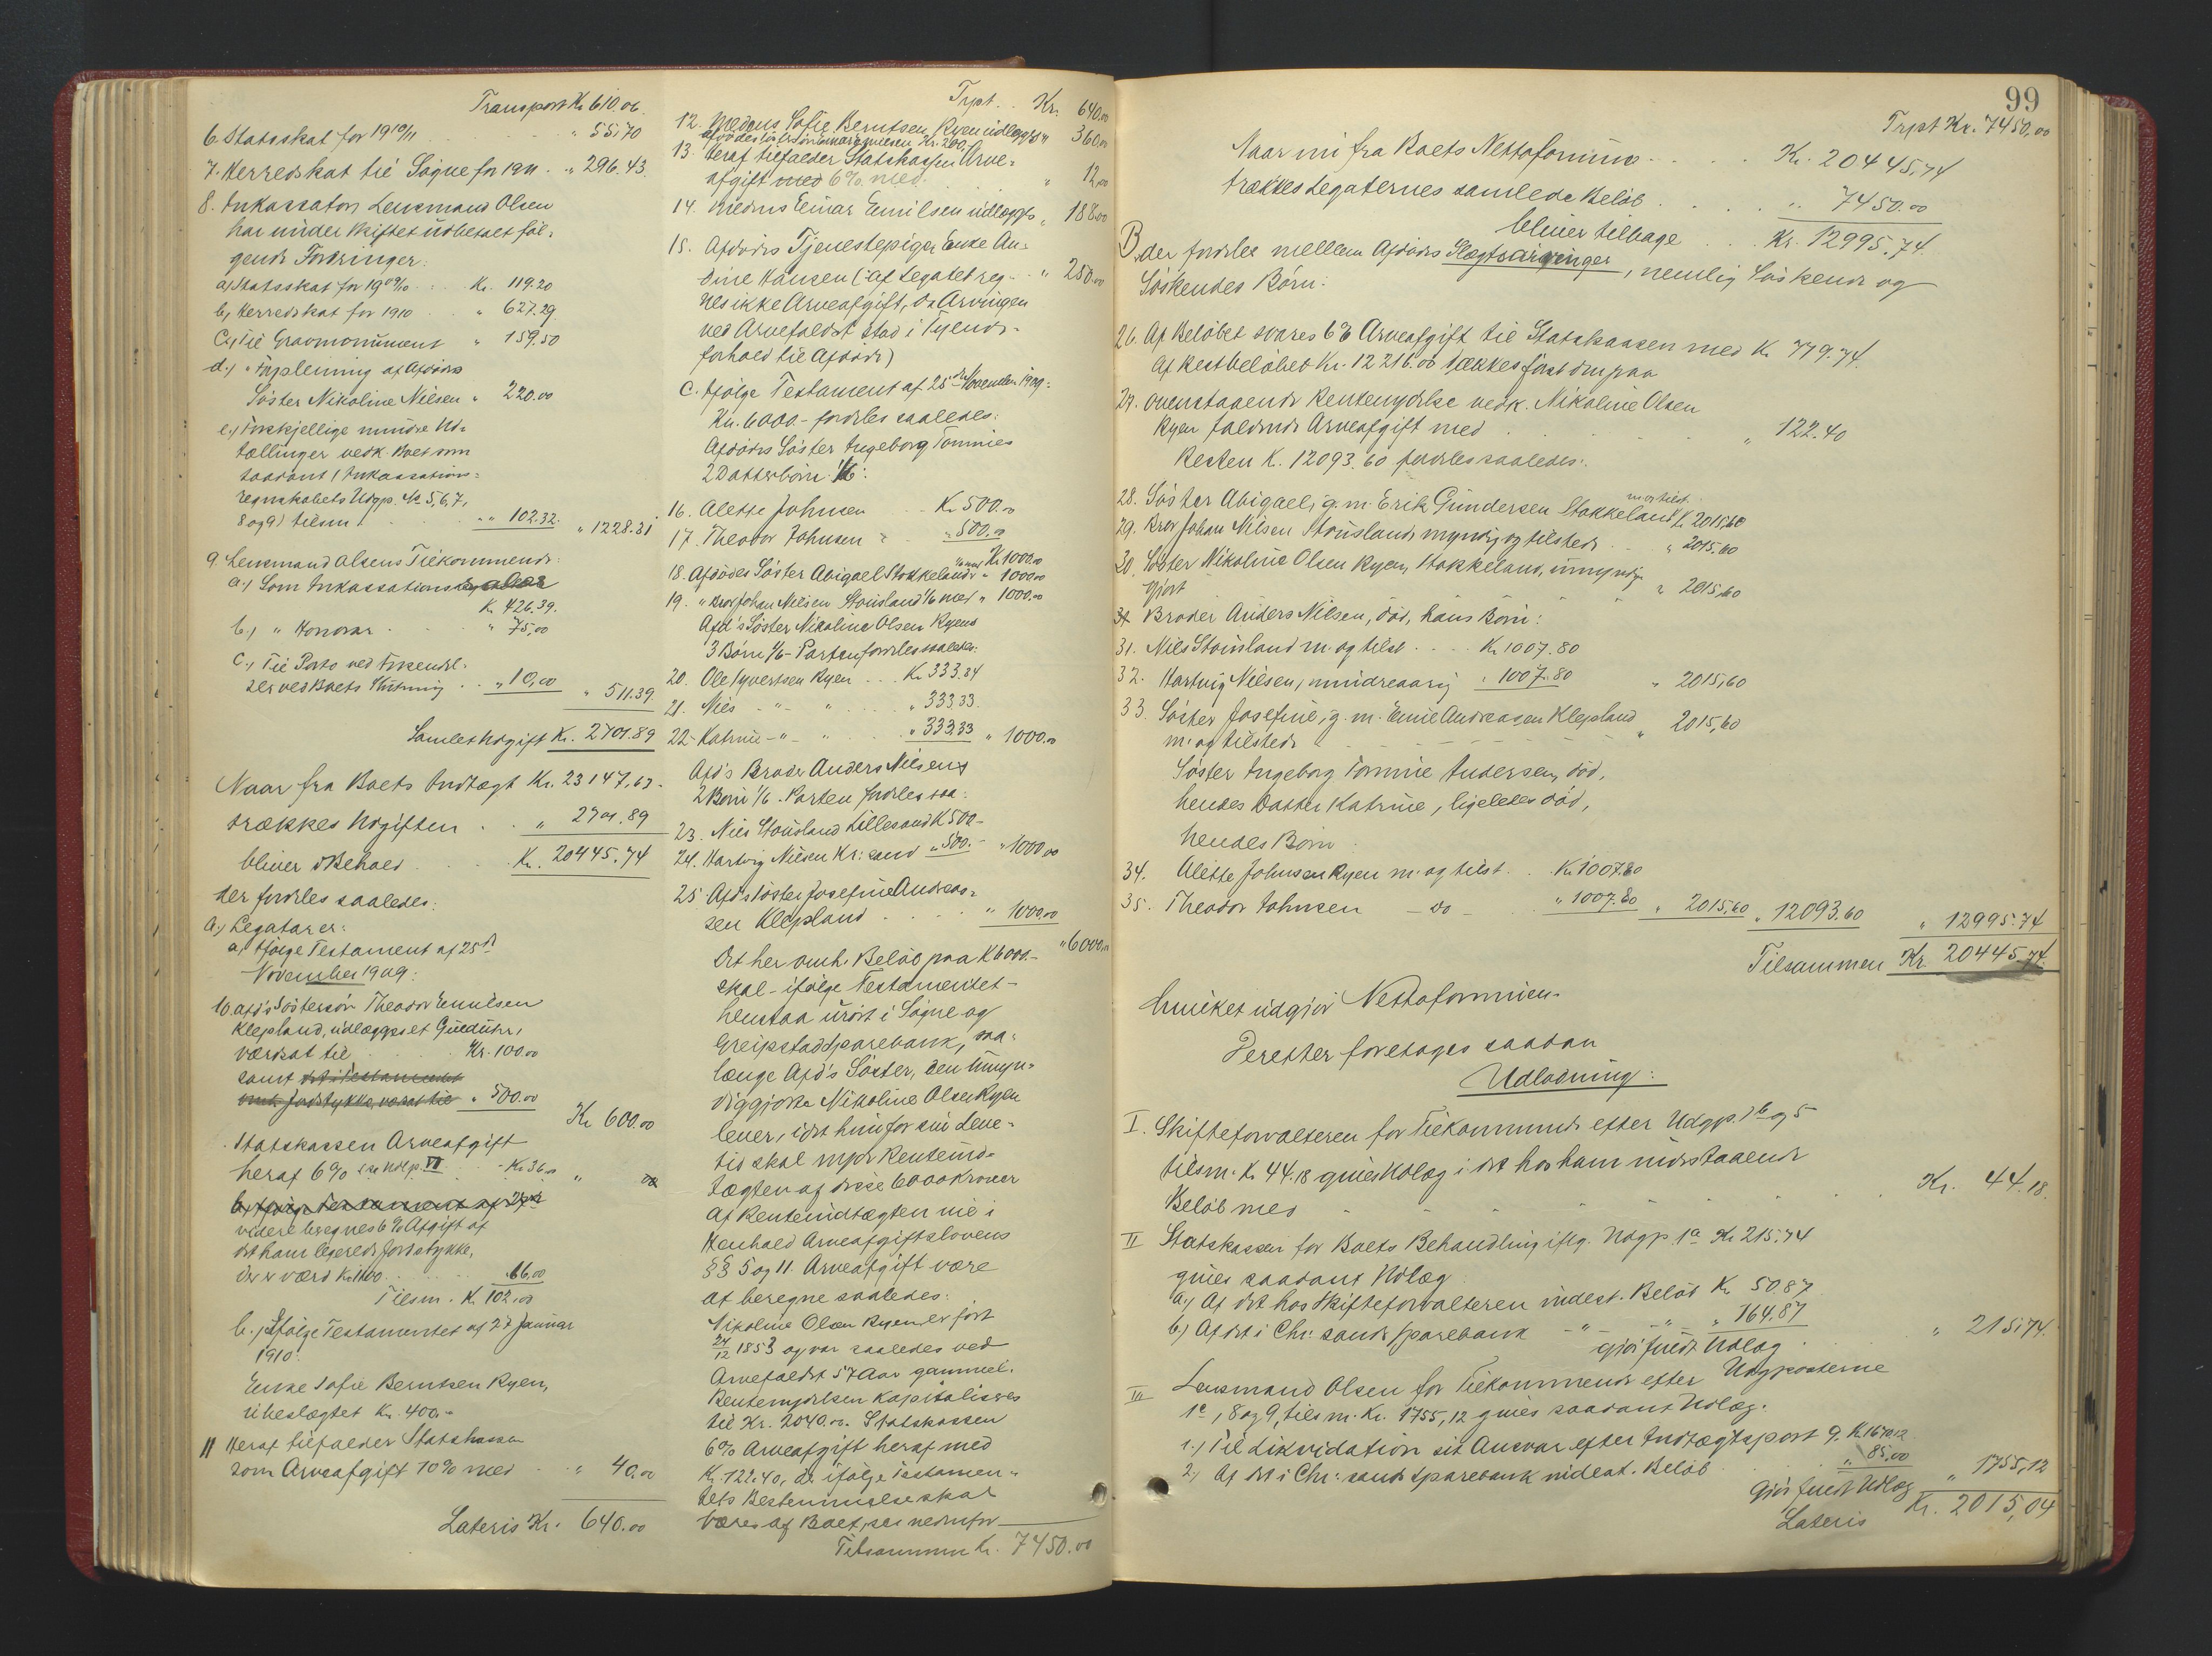 Transport Kr. 610.06
6. Statsskat for 1910/11 " 55.70
7. Herredskat til Søgne for 1911 . " 296.43.
8. Inkassator, Lensmand Olsen
har under Skiftet udbetalt føl-
gende Fordringer:
a) Statsskat for 1909/10 . . Kr. 119.20
b) Herredskat for 1910 . . " 627.29
c) Til Gravmonument " 159.50
d.) " Forpleining af Afdødes
Søster Nikoline Nilsen " 220.00
e.) Forskjellige mindre Ud-
tællinger vedk. Boet som
saadant (Inkassations-
regnskabets Udgp. No 5, 6, 7,
8 og 9) tilsm. . . " 102.32. " 1228.31
9. Lensmand Olsens Tilkommende:
a.) Som Inkassationssalær
Kr. 426.39.
b.) " Honorar . . " 75,00
c.) Til Porto ved Forsendel-
ser ved Boets Slutning . . " 10,00 " 511.39.
Samlet Udgift Kr. 2701.89
Naar fra Boets Indtægt Kr. 23147,63.
trækkes Udgiften . . " 2701.89
bliver i Behold . . Kr. 20445.74
der fordeles saaledes:
A.) Legatarer:
a) Ifølge Testament af 25de
November 1909:
10. Afd's Søstersøn Theodor Emilsen
Klepland, udlægges et Gulduhr,
værdsat til . . Kr. 100.00
samt det i Testamentet
omh. Jordstykke, værdsat til " 500.00
Kr 600.00
Statskassen Arveafgift
heraf 6% se Udlp. VII . . Kr. 36.00 "
b) Ifølge Testament af 27de
videre beregnes 6% Afgift af
det ham legerede Jordstykke,
der er værd Kr. 1100 . . 66,00
Tilsm. Kr. 102.00
b.) Ifølge Testamentet af 27 Januar
1910:
Enke Sofie Berntsen Ryen,
ubeslægtet Kr. 400.-
11 Heraf tilfalder Statskassen
som Arveafgift 10% med . . " 40.00
Lateris Kr. 640.00
Trpt. . . Kr. 640.00
12. Medens Sofie Berntsen Ryen udlægges " 360.00
afdødes Søstersøn Einar Emilsen Kr. 200.
13. Heraf tilfalder Statskassen Arve-
afgift med 6% med . . " 12,00
14. Medens Einar Emilsen udlægges " 188.00
15. Afdødes Tjenestepige Enke An-
dine Hansen (af Legatet reg- . . " 250.00
nes ikke Arveafgift, da Arvingen
ved Arvefaldet stod i Tyende-
forhold til Afdøde)
C. Ifølge Testament af 25de November 1909:
Kr. 6000.- fordeles saaledes:
Afdødes Søster Ingeborg Tommies
2 Datterbørn 1/6:
16. Alette Johnsen . . Kr. 500.00
17. Theodor Johnsen " . . " 500.00
tsmm. Kr 1000.00
18. Afdødes Søster Abigael Stokkeland " 1000.00
19. " Bror Johan Nilsen Stousland 1/6 med " 1000.00
Afd's Søster Nikoline Olsen Ryens
3 Børn 1/6-Parten fordeles saaledes:
20. Ole Syvertsen Ryen . . Kr. 333.34
21. Nils -"- " . . " 333,33.
22. Katrine -"- " . . " 333,33 " 1000.00
Afd's Broder Anders Nilsens
2 Børn 1/6. Parten fordeles saa:
23. Nils Stousland Lillesand K 500.-
24. Hartvig Nilsen Kr:sand " 500.- " 1000.00
25. Afd's Søster Josefine Andreas-
sen Klepland . . " 1000,00
" 6000.00
Det her omh. Beløb paa K 6000.-
skal - ifølge Testamentet -
henstaa urørt i Søgne og
Greipstad Sparebank, saa-
længe Afd's Søster, den umyn-
diggjorte Nikoline Olsen Ryen
lever, idet hun for sin Leve-
tid skal nyde Renteind-
tægten af disse 6000 Kroner
Af Renteindtægten vil i
Henhold Arveafgiftslovens
§§ 5 og 11. Arveafgift være
at beregne saaledes:
Nikoline Olsen Ryen er født
24/12 1853 og var saaledes ved
Arvefaldet 57 Aar gammel.
Rentenydelsen kapitaliseres
til Kr. 2040.00. Statskassen
6% Arveafgift heraf med
Kr. 122.40, der ifølge Testamen-
tets Bestemmelse skal
bæres af Boet, se nedenfor
Tilsammen Kr. 7450.00
99
Trpt Kr. 7450,00
Naar nu fra Boets Nettoformue . . Kr. 20445,74
trækkes Legaternes samlede Beløb . . " 7450.00
bliver tilbage . . Kr. 12995.74.
B. der fordeles mellem Afdødes Slægtsarvinger, nemlig Søskende og
Søskendes Børn:
26. Af Beløbet svares 6% Arveafgift til Statskassen med Kr. 779.74.
Af Restbeløbet Kr. 12216.00 dækkes først den paa
27. ovenstaaende Rentenydelse vedk. Nikoline Olsen
Ryen faldende Arveafgift med . . " 122.40
Resten K. 12093.60 fordeles saaledes:
28. Søster Abigael, g. m. Erik Gundersen Stokkeland, m og tilst. K. 2015,60
29. Bror Johan Nilsen Stousland, myndig og tilstede . . " 2015.60
30. Søster Nikoline Olsen Ryen, Stokkeland, umyndig-
gjort " 2015,60
Broder Anders Nilsen, død, hans Børn:
31. Nils Stousland m. og tilst. . . Kr. 1007.80
32. Hartvig Nilsen, mindreaarig . 1007.80 " 2015,60
33. Søster Josefine, g. m. Emil Andreasen Klepland
m. og tilstede " 2015,60
Søster Ingeborg Tomine Andersen, død,
hendes Datter Katrine, ligeledes død,
hendes Børn
34. Alette Johnsen Ryen m. og tilst. . . Kr. 1007.80
35. Theodor Johnsen - do - " 1007.80 " 2015,60 " 12093.60 " 12995.74
Tilsammen Kr. 20445.74
hvilket udgjør Nettoformuen.
Derefter foretages saadan
Udlodning:
I. Skifteforvalteren for Tilkommende efter Udgpp. 1b og 5
tilsm. Kr. 44.18 gives Udlæg i det hos ham indestaaende
Beløb med . . Kr. 44.18.
II Statskassen for Boets Behandling iflg. Udgp. 1a Kr. 215.74
gives saadant Udlæg
a.) Af det hos Skifteforvalteren indest. Beløb Kr. 50.87
b.) Af det i Chr:sands Sparebank -"- -"- " 164.87
gjør fuldt Udlæg . " 215.74.
III Lensmand Olsen for Tilkommende efter Udgpposterne
1c, 8 og 9, tilsm. Kr. 1755,12 gives saadant Udlæg.
1.) Til Likvidation sit Ansvar efter Indtægtspost 9. K 1670.12
2.) Af det i Chr:sands Sparebank indest. Beløb . . " 85,00
gjør fuldt Udlæg " 1755,12
Lateris Kr. 2015,04